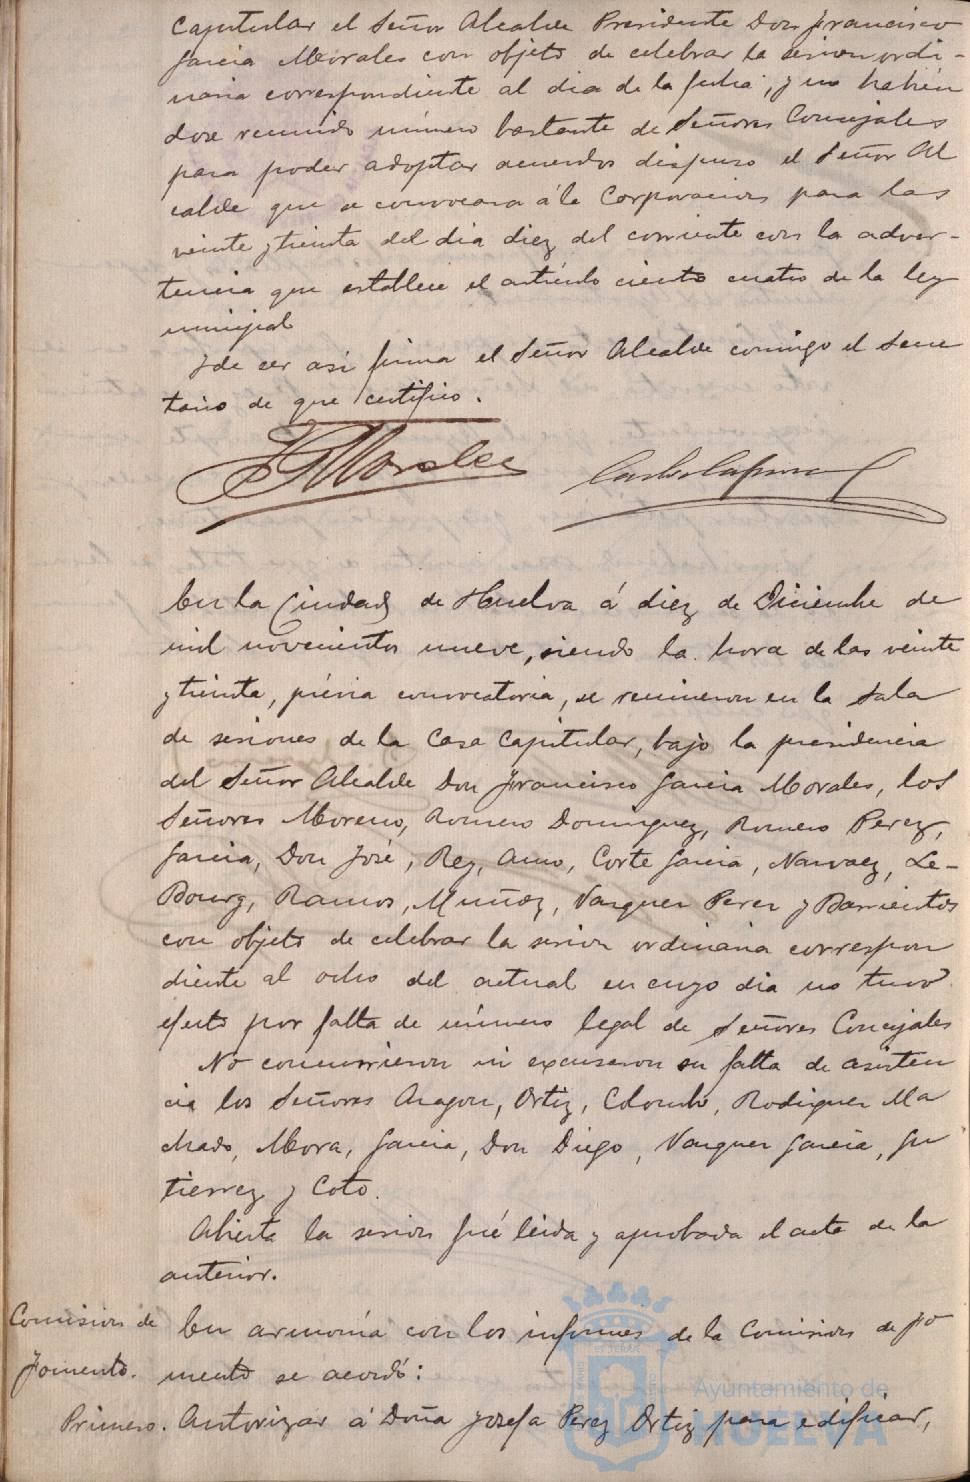 Capitular el Señor Alcalde Presidente Don Francisco
Garcia Morales con objeto de celebrar la sesion ordi-
naria correspondiente al dia de la fecha, y no habien
dose reunido número bastante de Señores Concejales
para poder adoptar acuerdos dispuso el Señor Al
calde que se convocara á la Corporacion para las
veinte y treinta del dia diez del corriente con la adver-
tencia que establece el articulo ciento cuatro de la ley
municipal
Y de ser así firma el Señor Alcalde conmigo el Secre
tario de que certifico.
FG Morales
En la Ciudad de Huelva á diez de Diciembre de
mil novecientos nueve, siendo la hora de las veinte
y treinta, prévia convocatoria, se reunieron en la Sala
de sesiones de la Casa Capitular, bajo la presidencia
del Señor Alcalde Don Francisco Garcia Morales, los
Señores Moreno, Romero Dominguez, Romero Perez,
Garcia, Don José, Rey, Amo, Corte Garcia, Narvaez, Le-
Bourg, Ramos, Muñoz, Vazquez Perez y Barrientos
con objeto de celebrar la sesion ordinaria correspon
diente al ocho del actual en cuyo dia no tuvo
efecto por falta de número legal de Señores Concejales
No concurrieron ni excusaron su falta de asisten
cia los Señores Aragon, Ortiz, Colombo, Rodriguez Ma
chado, Mora, Garcia, Don Diego, Vazquez Garcia, Gu
tierrez y Coto.
Abierta la sesion fué leida y aprobada el acta de la
anterior.
Comision de
Fomento.
En armonía con los informes de la Comision de Fo
mento se acordó:
Primero. Autorizar á Doña Josefa Perez Ortiz para edificar,
Ayuntamiento de
HUELVA